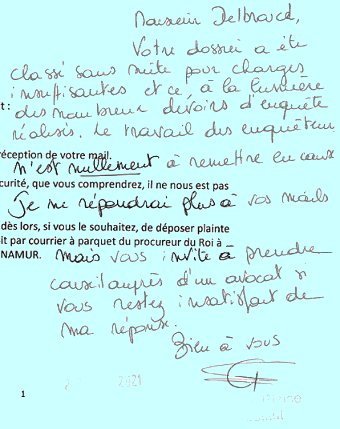 Monsieur Delbrard,
Votre dossier a été
classé sans suite pour charges
insuffisantes et ce, à la lumière
t :
des nombreux devoirs d'enquête
réalisés. Le travail des enquêteurs
réception de votre mail.
n'est nullement à remettre en cause
curité, que vous comprendrez, il ne nous est pas
Je ne répondrai plus à vos mails
dès lors, si vous le souhaitez, de déposer plainte
it par courrier à parquet du procureur du Roi à
NAMUR. mais vous invite à prendre
conseil auprès d'un avocat si
vous restez insatisfait de
ma réponse.
Bien à vous
2021
1